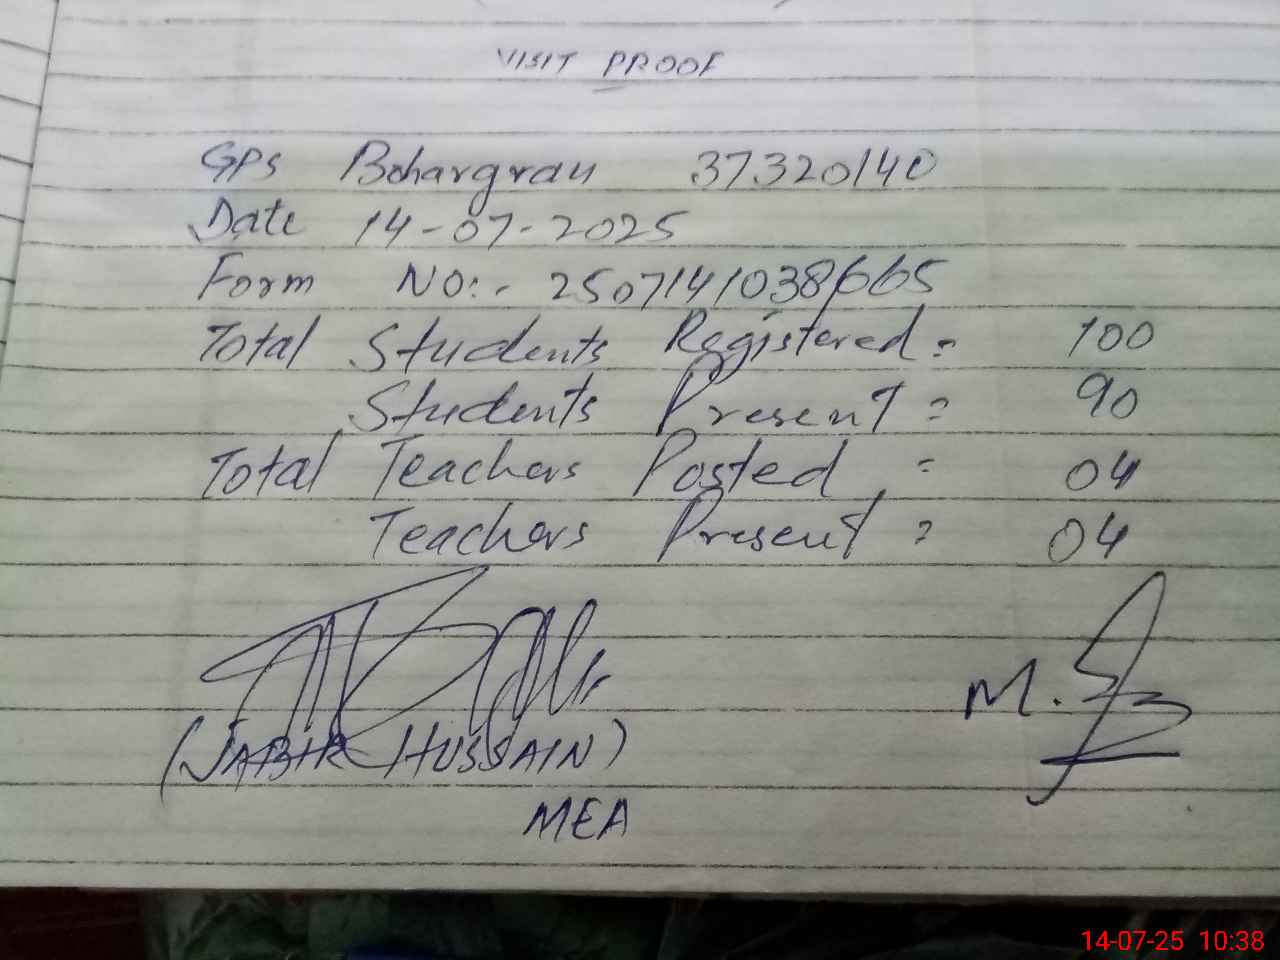 VISIT PROOF
GPS Bohargran 37320140
Date 14-07-2025
Form NO:- 2507141038665
Total Students Registered = 100
Students Present = 90
Total Teachers Posted = 04
Teachers Present = 04
M.
(JABIR HUSSAIN)
MEA
14-07-25 10:38